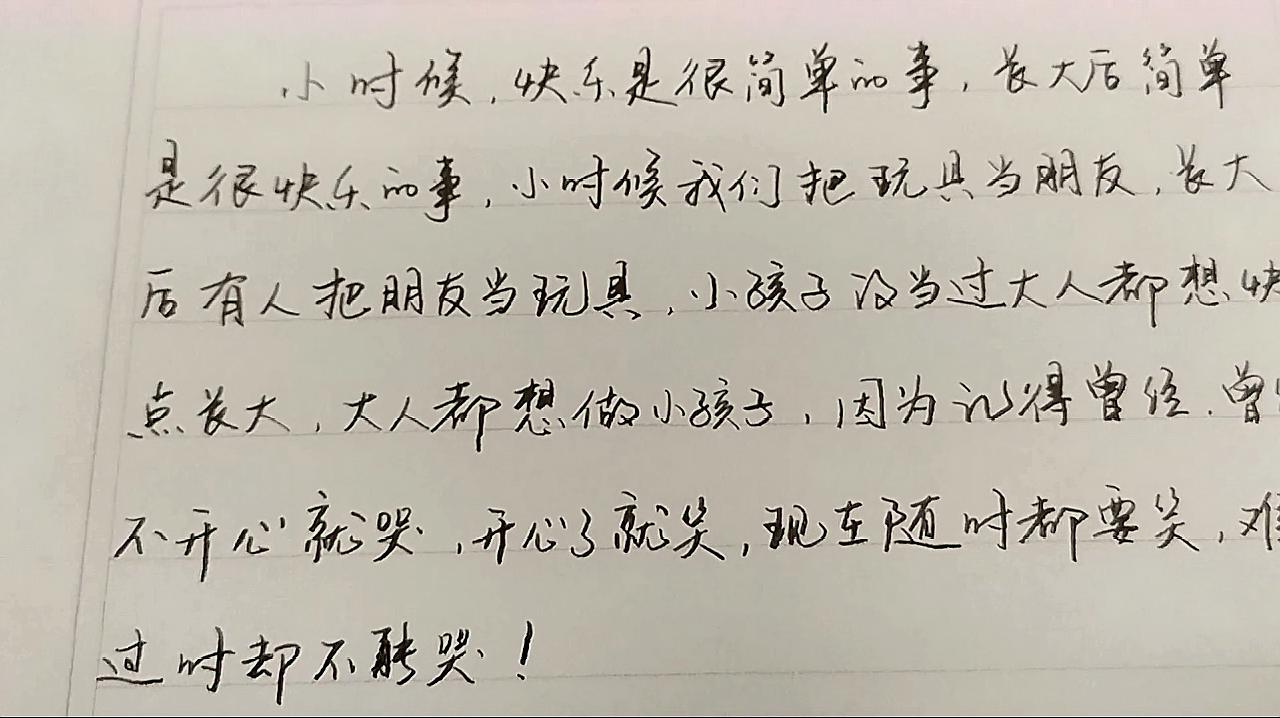 小时候,快乐是很简单的事,长大后简单
是很快乐的事,小时候我们把玩具当朋友,长大
后有人把朋友当玩具,小孩子没当过大人都想快
点长大,大人都想做小孩子,因为记得曾经.曾
不开心就哭,开心了就笑,现在随时都要笑,难
过时却不能哭!